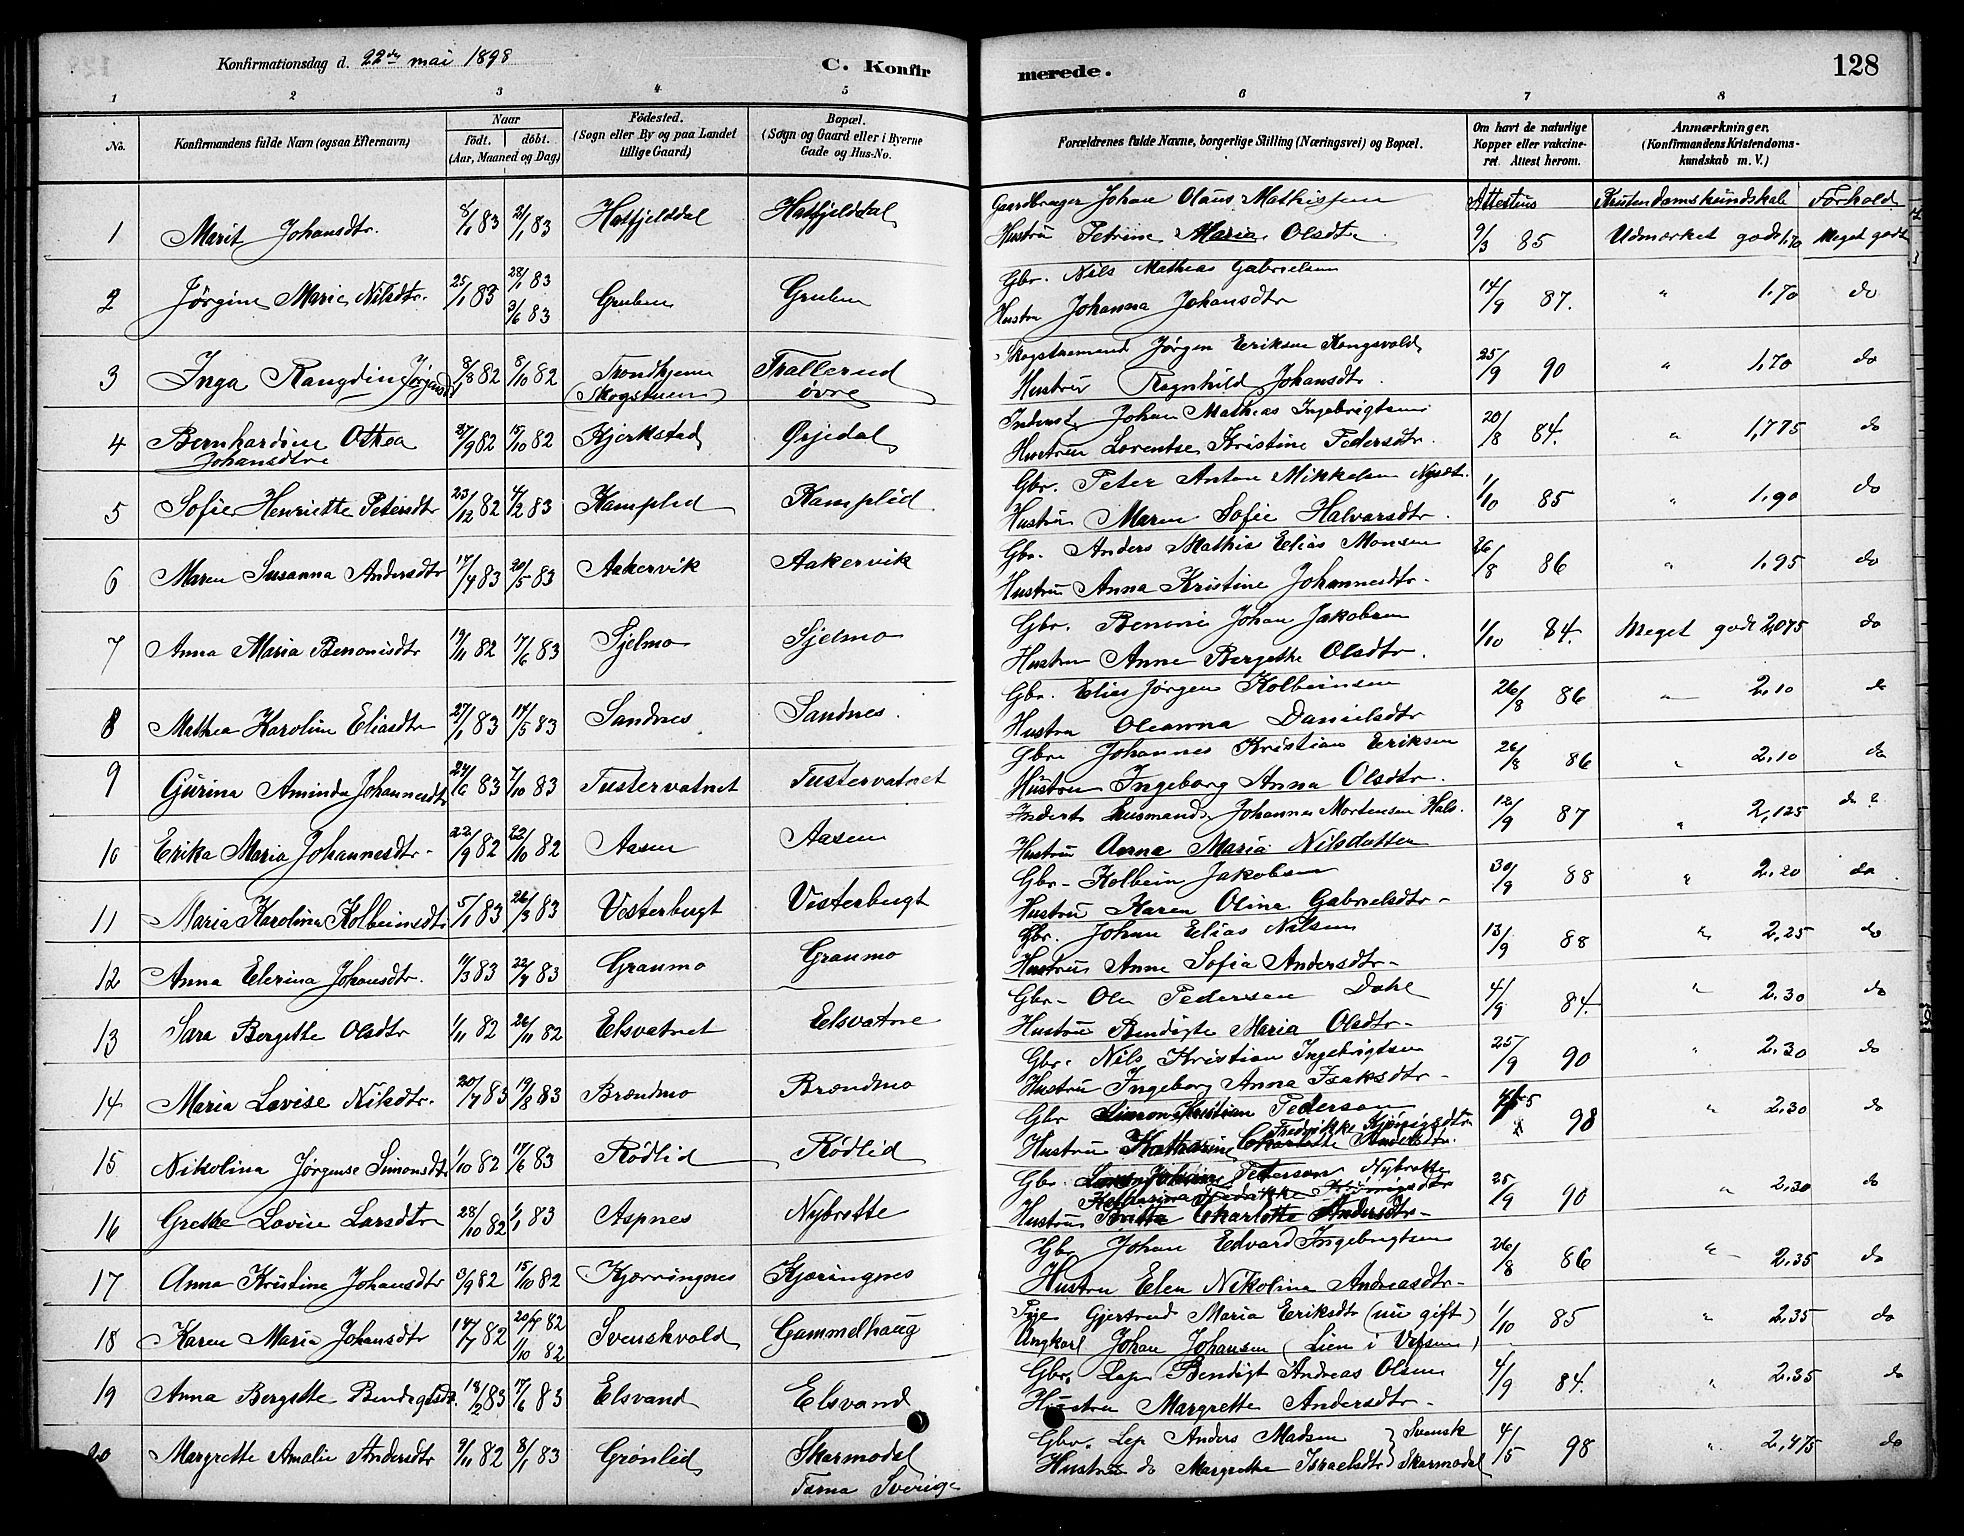 Konfirmationsdag d. 22de mai 1898
C. Konfirmerede.
128
1 2 3 4 5 6 7 8
No.
Konfirmandens fulde Navn (ogsaa Efternavn)
Naar
født. døbt.
(Aar, Maaned og Dag)
Fødested.
(Sogn eller By og paa Landet
tillige Gaard)
Bopæl.
(Sogn og Gaard eller i Byerne
Gade og Hus-No.
Forældrenes fulde Navne, borgerlige Stilling (Næringsvei) og Bopæl.
Om havt de naturlige
Kopper eller vakcine-
ret. Attest herom.
Anmærkninger.
(Konfirmandens Kristendoms-
kundskab m. V.)
Attestus Kristendomskundskab Forhold
1 Marit Johansdtr. 8/1 83 21/1 83 Hatfjelddal Hatfjelddal
Gaardbruger Johan Olaus Mathissen
Hustru Petrine Maria Olsdtr 9/3 85 Udmærket godt 1,70 Meget godt
2 Jørgine Marie Nilsdtr. 25/1 83 28/1 83 3/6 83 Gruben Gruben
Gbr. Nils Mathias Gabrielsen
Hustru Johanna Johansdtr 14/9 87. " 1.70 do
3 Inga Rangdin Jørgensd 8/8 82 8/10 82 Trondhjem (Skogstuen) Trallerud øvre
Jørgen Eriksen Kongsvold
Hustru Ragnhild Johansdtr. 25/9 90 " 1,70 do
4 Bernhardine Othea Johansdtr 27/9 82 15/10 82 Kjerkstad Ørjedal
Inderst Johan Mathias Ingebrigtsen
Hustru Lorentse Kristine Pedersdtr. 20/8 84. " 1,775 do
5 Sofie Henriette Petersdtr 23/12 82 4/2 83 Kamplid Kamplid
Gbr. Peter Anton Mikkelsen
Hustru Maren Sofie Halvarsdtr. 1/10 85 " 1.90 do
6 Maren Susanna Andersdtr 17/4 83 20/5 83 Aakervik Aakervik
Gbr. Anders Mathis Elias Monsen
Hustru Anna Kristine Johannesdtr. 26/8 86 " 1.95 do
7 Anna Maria Benonisdtr 19/11 82 17/6 83 Sjelmo Sjelmo
Gbr. Benoni Johan Jakobsen
Hustru Anne Bergette Olsdtr. 1/10 84. Meget godt 2,075 do
8 Mathea Karoline Eliasdtr 27/1 83 14/5 83 Sandnes Sandnes.
Gbr. Elias Jørgen Kolbeinsen
Hustru Oleanna Danielsdtr 26/8 86 " 2.10 do
9 Gurina Aminda Johannesdtr 24/6 83 7/10 83 Tustervatnet Tustervatnet
Gbr. Johannes Kristian Eriksen
Hustru Ingeborg Anna Olsdtr. 26/8 86 " 2.10 do
10 Erika Maria Johannesdtr 22/9 82 22/10 82 Aasen Aasen
Inderst Husmand Johannes Mortensen Hals.
Hustru Anna Maria Nilsdatter 12/9 87 " 2,125 do ?
11 Maria Karolina Kolbeinsdtr 5/1 83 26/3 83 Vesterbugt Vesterbugt
Gbr. Kolbein Jakobsen
Hustru Karen Olina Gabrielsdtr 30/9 88 " 2.20 do
12 Anna Elerina Johansdtr. 11/3 83 22/4 83 Granmo Granmo
Gbr. Johan Elias Nilsen
Hustru Anne Sofia Andersdtr 13/9 88 " 2.25 do
13 Sara Bergette Olsdtr 1/11 82 26/11 82 Elsvatnet Elsvatne
Gbr Ole Pedersen Dahl
Hustru Bendigte Maria Olsdtr 4/9 84. " 2.30 do
14 Maria Lovise Nilsdtr. 20/7 83 19/8 83 Brendmo Brendmo
Gbr. Nils Kristian Ingebrigtsen
Hustru Ingeborg Anna Isaksdtr 25/9 90 " 2.30 do
15 Nikolina Jørgense Simonsdtr 1/10 82 17/6 83 Rødlid Rødlid
Gbr Simon Kristian Pedersen
Hustru Katharine Charlotte Andersdtr. 98 " 2.30 do
16 Grethe Lovise Larsdtr 28/10 82 1/1 83 Aspnes Nybrotte
Gbr. Peterson Nybrotte
Katharina Fredrikke
Hustru Britta Charlotte Andersdtr 25/9 90 " 2.30 do
17 Anna Kristine Johansdtr 3/9 82 15/10 82 Kjerringnes Kjæringnes
Gbr Johan Edvard Ingebrigtsen
Hustru Elen Nikolina Andreasdtr 26/8 86 " 2.35 do
18 Karen Maria Johansdtr 14/7 82 20/7 82 1/10 82 Svenskvold Gammelhaug
Pige Gjertrud Maria Eriksdtr (nu gift)
Ungkarl Johan Johansen (Lien i Vefsen) 1/10 85 " 2.35 do
19 Anna Bergette Bendigtsdt. 18/2 83 17/6 83 Elsvand Elsvand
Gbr Lap Bendigt Andreas Olsen
Hustru Margrette Andersdtr 4/9 84. " 2.35 do
20 Margrette Amalie Andersdtr 9/11 82 8/1 83 Grønlid Skarmodal Tarna Sverige
Gbr. Lap Anders Madsen } Svensk
Hustru do Margrette Israelsdtr } Skarmodal 4/5 98 " 2,475 do